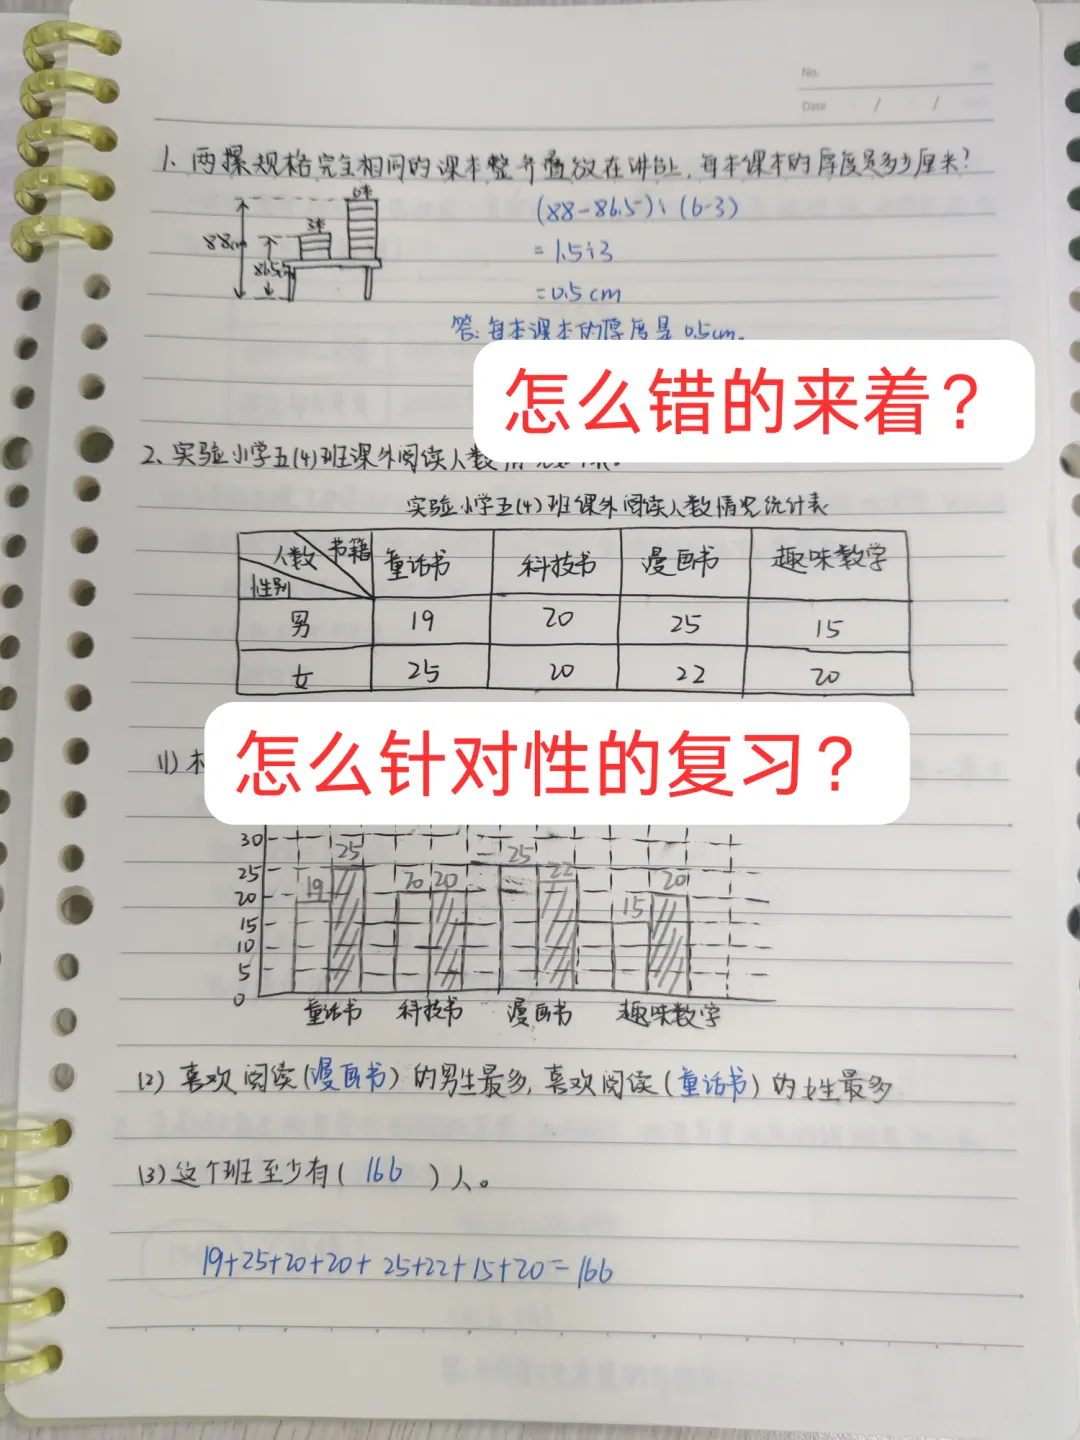 No.
Date / /
1、两摞规格完全相同的课本整齐叠放在讲台上,每本课本的厚度是多少厘米?
6本
3本
88cm
86.5cm
(88-86.5)÷(6-3)
=1.5÷3
=0.5cm
答:每本课本的厚度是0.5cm.
怎么错的来着?
2、实验小学五(4)班课外阅读人数情
实验小学五(4)班课外阅读人数情况统计表
人数 书籍 性别 童话书 科技书 漫画书 趣味数学
男 19 20 25 15
女 25 20 22 20
怎么针对性的复习?
(1)
30
25
20
15
10
5
0
19 25 20 20 25 22 15 20
童话书 科技书 漫画书 趣味数学
(2)喜欢阅读(漫画书)的男生最多,喜欢阅读(童话书)的女生最多
(3)这个班至少有(166)人。
19+25+20+20+25+22+15+20=166